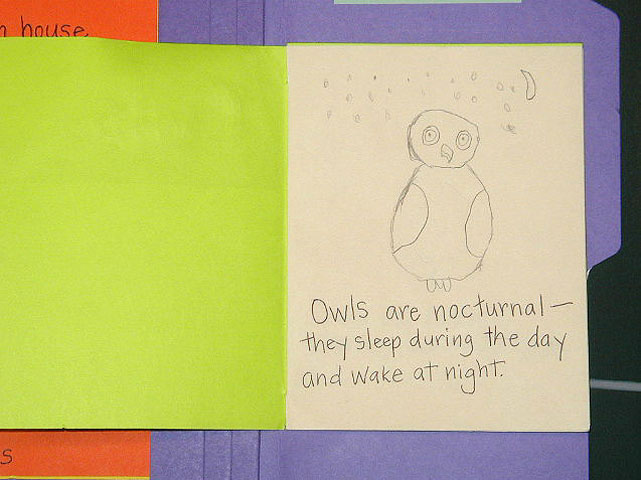 house
Owls are nocturnal—
they sleep during the day
and wake at night.